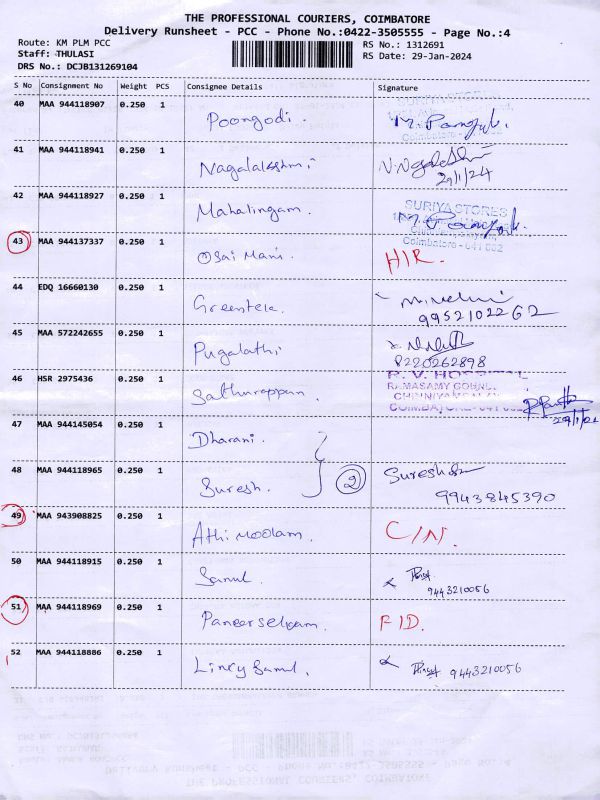 THE PROFESSIONAL COURIERS, COIMBATORE
Delivery Runsheet - PCC - Phone No.:0422-3505555 - Page No.:4
Route: KM PLM PCC
Staff: THULASI
DRS No.: DCJB131269104
RS No.: 1312691
RS Date: 29-Jan-2024
S No Consignment No Weight PCS Consignee Details Signature
40 MAA 944118907 0.250 1 Poongodi.
Coimbatore
41 MAA 944118941 0.250 1 Nagalakshmi
29/1/24
42 MAA 944118927 0.250 1 Mahalingam.
SURIYA STORES
Coimbatore - 641 002
43 MAA 944137337 0.250 1 Osai Mani. HIR.
44 EDQ 16660130 0.250 1 Greentela.
9952102262
45 MAA 572242655 0.250 1 Pugalathi
8220262898
46 HSR 2975436 0.250 1 Sathurappan.
R. V. HOSPITAL
RAMASAMY GOUND
29/1/24
47 MAA 944145054 0.250 1 Dharani.
48 MAA 944118965 0.250 1 Suresh. 2 Suresh
9943845390
49 MAA 943908825 0.250 1 Athi Moolam. C/N.
50 MAA 944118915 0.250 1 Samul.
9443210056
51 MAA 944118969 0.250 1 Paneerselvam. FID.
52 MAA 944118886 0.250 1 Lincy Samul. 9443210056